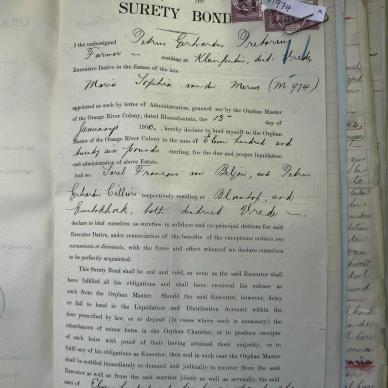 SURETY BOND
I the undersigned Petrus Gerhardus Pretorius
Farmer residing at Klipfontein, dist. Vrede
Executive Dative in the Estate of the late
Maria Sophia van der Merwe (M 974)
appointed as such by letter of Administration, granted me by the Orphan Master
of the Orange River Colony, dated Bloemfontein, the 13th day of
January 190, hereby declare to bind myself to the Orphan
Master of the Orange River Colony in the sum of Eleven hundred and
twenty six pounds sterling, for the due proper liquidation
and administration of above Estate.
And we Francois van and Petrus
Gerhardus Cilliers respectively residing at and
both district Vrede
declare to bind ourselves as sureties in solidum and co-principal debtors for said
Executor Dative, under renunciation of the benefits of the exceptions ordinis seu
excussionis et divisionis, with the force and effect whereof we declare ourselves
to be perfectly acquainted.
This Surety Bond shall be null and void, as soon as the said Executor shall
have fulfilled all his obligations and shall have received his release as
such from the Orphan Master. Should the said Executor, however, delay
or fail to hand in the Liquidation and Distribution Account within the
time prescribed by law, or to deposit (in Cases where such is necessary) the
inheritance of minor heirs in the Orphan Chamber, or to produce receipts
of such heirs with proof of their having attained their majority, or to
fulfil any of his obligations as Executor, then and in such case the Orphan Master
shall be entitled immediately to demand and judicially to recover from the said
Executor as well as from the said sureties jointly as well as severally, the said
sum of Eleven